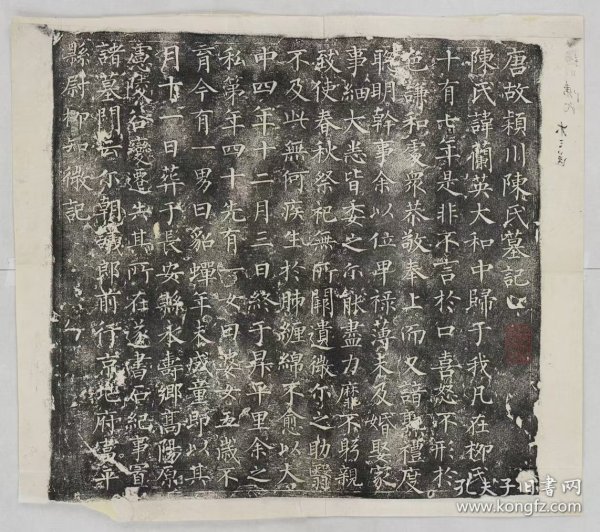 唐故潁川陳氏墓記
陳氏諱蘭英大和中歸于我凡在柳氏
十有七年是非不言於口喜怒不形於
色謙和處眾恭敬奉上而又諳熟禮度
聰明幹事余以位卑祿薄未及婚娶家
事細大悉皆委之尔能盡力靡不躬親
致使春秋祭祀無所闕遺微尔之助翳
不及此無何疾生於肺纏綿不愈以大
中四年十二月三日終于昇平里余之
私第年四十先有一女曰婆女五歲不
育今有一男曰貂蟬年未成童即以其
月十一日葬于長安縣永壽鄉高陽原
慮陵谷變遷失其所在遂書石紀事寘
諸墓門云尔朝議郎前行京地府富平
縣尉柳知微記
孔夫子旧书网
www.kongfz.com